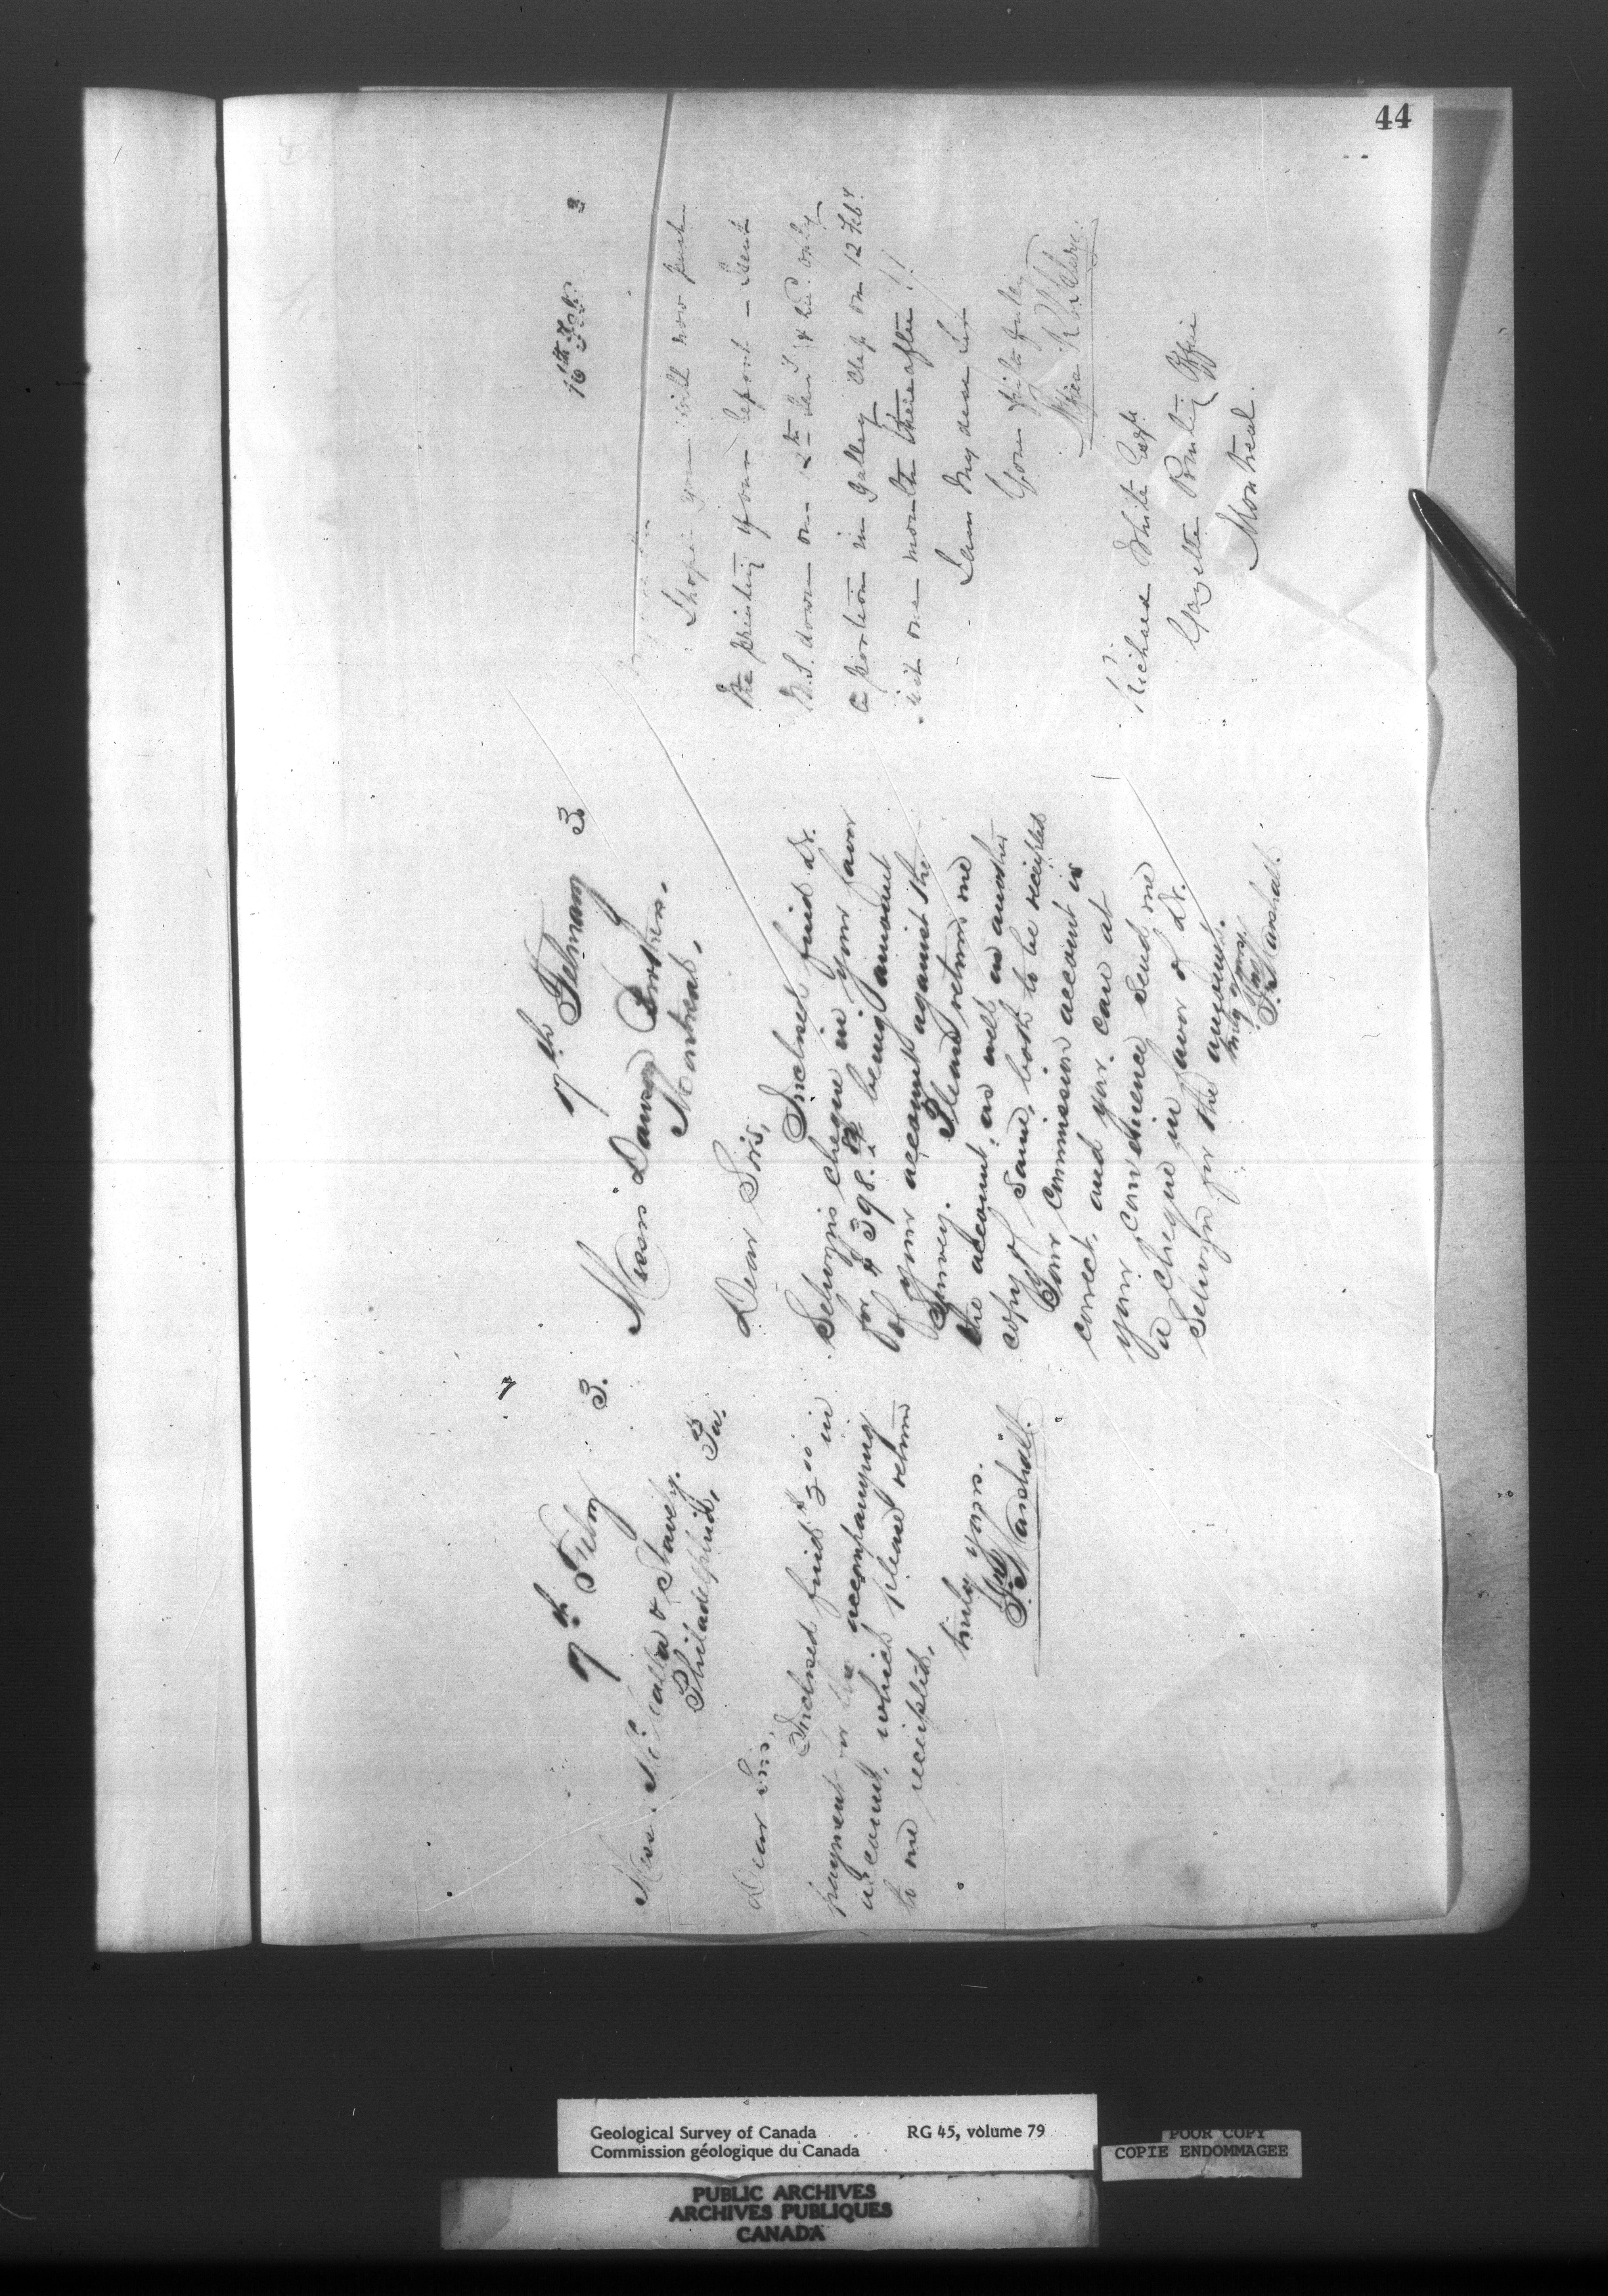 44
7
7th Feby 3.
Messrs McCalla & Stavely.
Philadelphia, Pa.
Dear Sirs,
Inclosed find $3 00 in
payment for the accompanying
account, which please return
to me receipted.
truly yours.
Marshall.
7th February 3
Messrs Dawson Brothers.
Montreal.
Dear Sirs,
Inclosed find Dr.
Selwyn's cheque in your favor
for $398. being amount
of your account against the
Survey. Please return me
the account, as well as another
copy of same, both to be receipted
Your commission account is
correct, and you can at
your convenience send me
a cheque in favor of Dr.
Selwyn for the amount.
truly yours,
Marshall.
16th Feb. 3
I hope you will now push
the printing of our report - Sent
M.S. down on 2th Jany & recd. only
a portion in galley slip on 12 Feby
just one month thereafter!!
I am My dear Sir
Yours faithfully
Richard White Esqr.
Gazette Printing Office
Montreal.
Geological Survey of Canada RG 45, volume 79
Commission géologique du Canada
POOR COPY
COPIE ENDOMMAGEE
PUBLIC ARCHIVES
ARCHIVES PUBLIQUES
CANADA